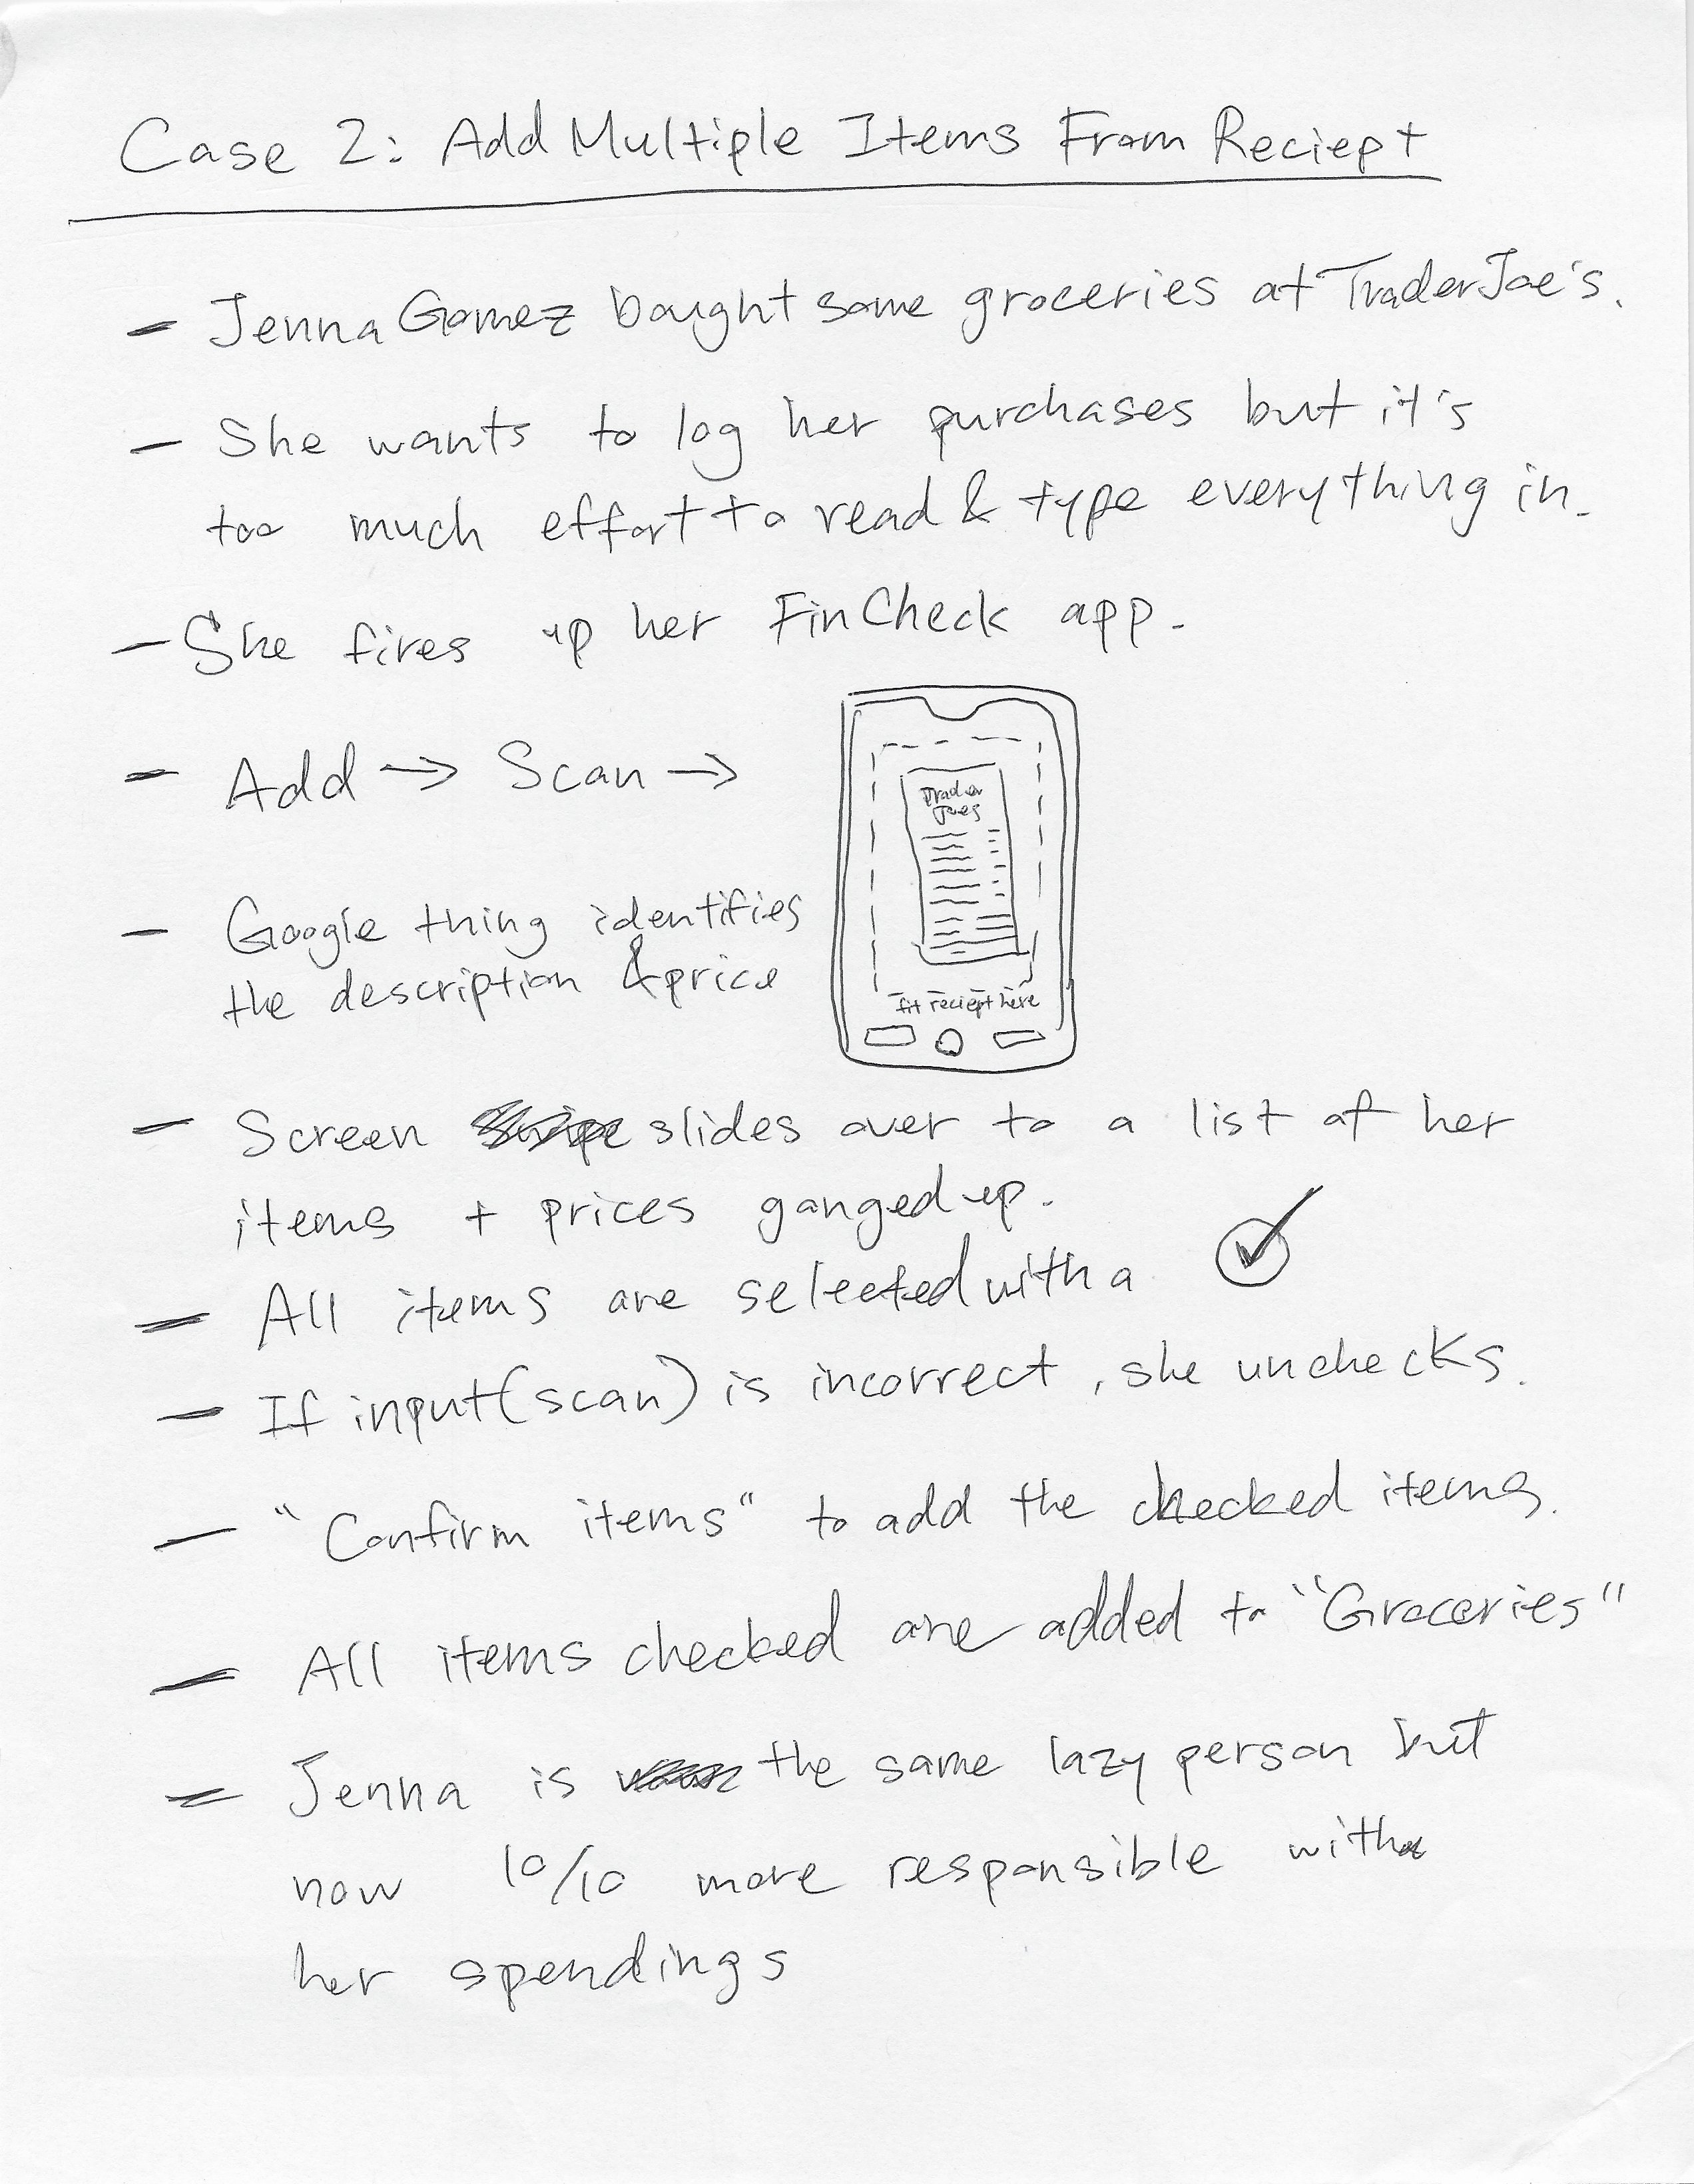 Case 2: Add Multiple Items From Reciept
- Jenna Gomez bought some groceries at Trader Joe's.
- She wants to log her purchases but it's
too much effort to read & type everything in.
- She fires up her FinCheck app.
- Add → Scan →
Trader
Joes
- Google thing identifies
the description & price
fit reciept here
- Screen slides over to a list of her
items + prices ganged up.
- All items are selected with a ✓
- If input (scan) is incorrect, she unchecks.
- "Confirm items" to add the checked items.
- All items checked are added to "Groceries"
- Jenna is the same lazy person but
now 10/10 more responsible with
her spendings